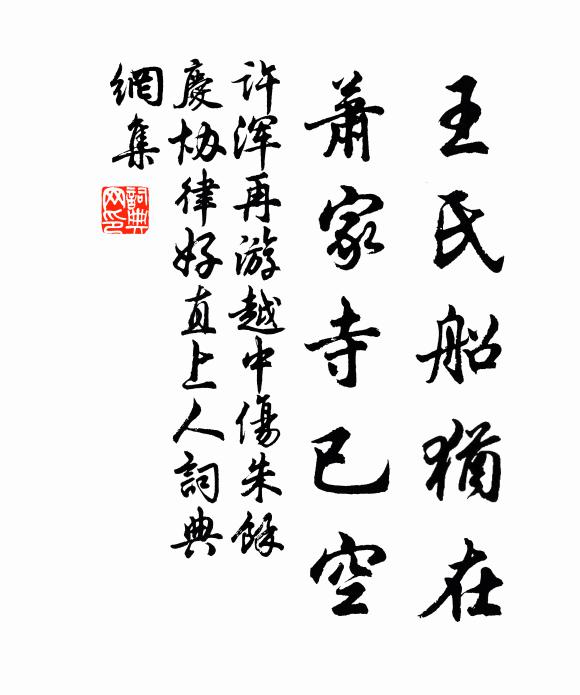 王氏船猶在
蕭家寺已空
许渾再游越中傷朱餘
慶協律好直上人詞典
網集
詞典
网印